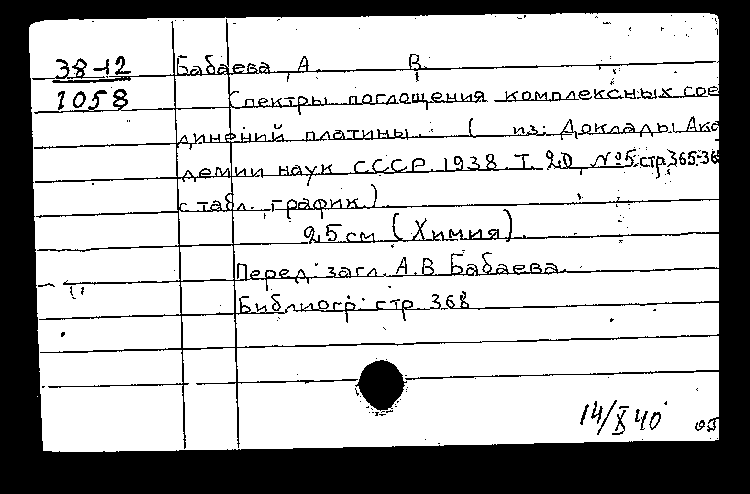 38-12 Бабаева, А. В.
1058 Спектры поглощения комплексных сое
динений платины. ( из: Доклады Ака
демии наук СССР. 1938. Т. 20, №5. стр. 365-36
с табл., график.)
25 см (Химия).
Перед загл. А.В. Бабаева.
Библиогр: стр. 368
14/X 40